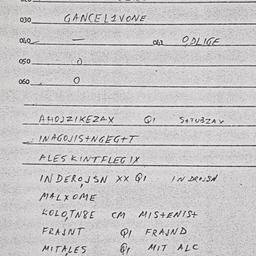 030 GANCEL1VONE
040 — 042 O,DLIGE
050 O
060 O
AHOJZIKEZAX QI S+TUBZAV
INAGOJIS+NGEG+T
ALES KINTFLEGIX
INDEROJSN XX QI INDROJSN
MALXOME
KOLO,TN8E CM MIS+ENIS+
FRAJNT QI FRAJND
MITALES QI MIT ALC